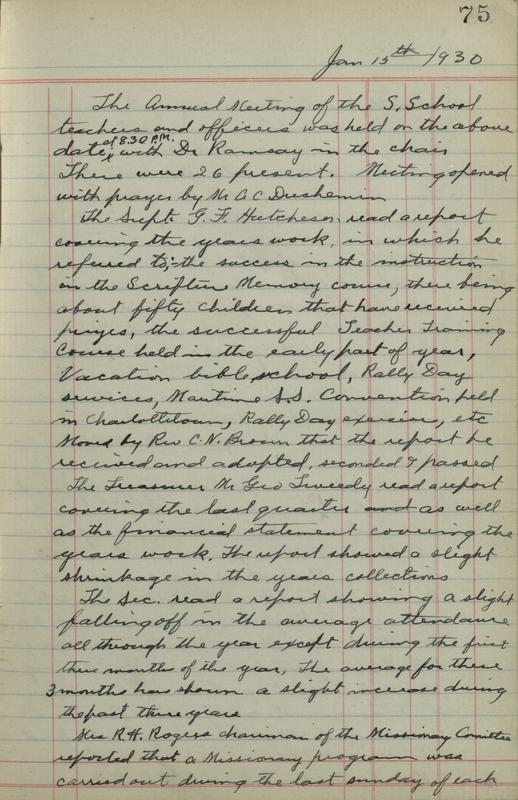 75
Jan 15th 1930
The Annual Meeting of the S. School
teachers and officers was held on the above
at 8.30 P.M.
date, with Dr Ramsay in the chair
There were 26 present. Meeting opened
with prayer by Mr A C Dueshemin
The Supt. G. F. Hutcheson read a report
covering the years work, in which he
refered to; the success in the instruction
in the Scripture Memory course, there being
about fifty children that have received
prizes, the successful Teacher Training
Course held in the early part of year,
Vacation bible school, Rally Day
services, Maritime S.S. Convention held
in Charlottetown, Rally Day exercise, etc
Moved by Rev C. N. Brown that the report be
received and adopted, seconded & passed
The Treasurer Mr Geo Tweedy read a report
covering the last quarter and as well
as the financial statement covering the
years work. The report showed a slight
shrinkage in the years collections
The Sec. read a report showing a slight
falling off in the average attendance
all through the year except during the first
three months of the year, The average for these
3 months has shown a slight increase during
the past three years
Mrs R. H. Rogers chairman of the Missionary Comittee
reported that a Missionary program was
carried out during the last sunday of each